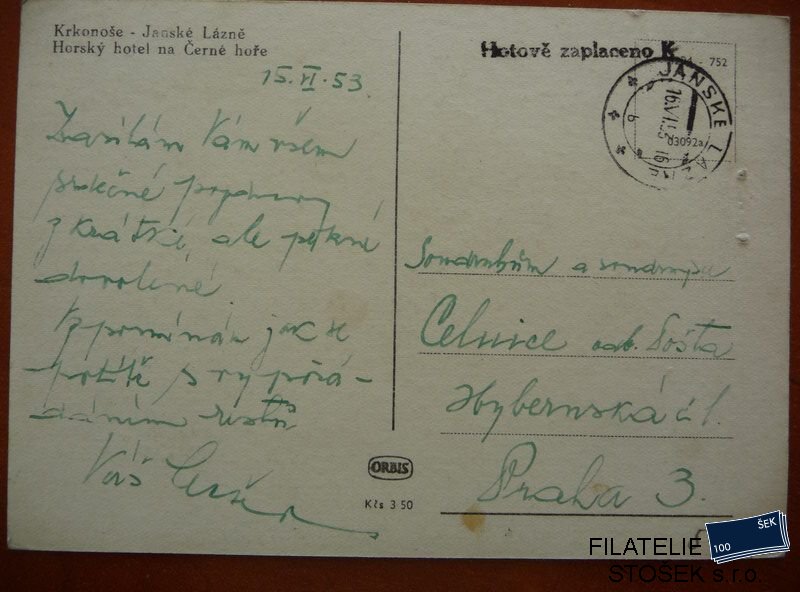 Krkonoše - Janské Lázně
Horský hotel na Černé hoře
15.VI.53.
Zasílám Vám všem
srdečné pozdravy
z krátké, ale pěkné
dovolené.
Vzpomínám jak se
potíte s vypořá-
dáním restů
Váš
Hotově zaplaceno K
- 752
JANSKÉ LÁ
16.VI.53 16
b
03092a
Soudruhům a soudružce
Celnice odb. Pošta
Hybernská č 1.
Praha 3.
ORBIS
Kčs 3·50
100 ŠEK
FILATELIE
STOŠEK s.r.o.